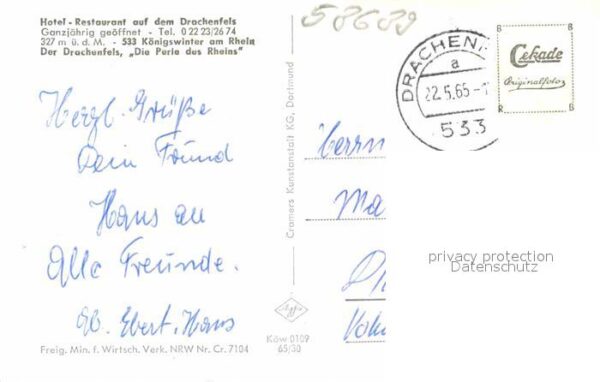 Hotel-Restaurant auf dem Drachenfels
Ganzjährig geöffnet - Tel. 0 22 23/26 74
327 m ü. d. M. - 533 Königswinter am Rhein
Der Drachenfels, „Die Perle des Rheins"
58689
Herzl. Grüße
Dein Freund
Hans an
Alle Freunde.
Ebert, Hans
Freig. Min. f. Wirtsch. Verk. NRW Nr. Cr. 7104
Cramers Kunstanstalt KG, Dortmund
Agfa
Köw 0109
65/30
DRACHENF
a
22.5.65-1
533
Cekade
Originalfoto
R B
Herrn
Ma
privacy protection
Datenschutz